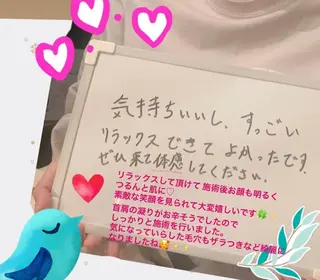 気持ちいいし、すっごい
リラックスできてよかったです。
ぜひ来て体感してください。
リラックスして頂けて 施術後お顔も明るく
つるんと肌に♡
素敵な笑顔を見られて大変嬉しいです🍀✨
首肩の凝りがお辛そうでしたので
しっかりと施術を行いました。
気になっていらした毛穴もザラつきなど綺麗に
なりましたね🥰✨✨